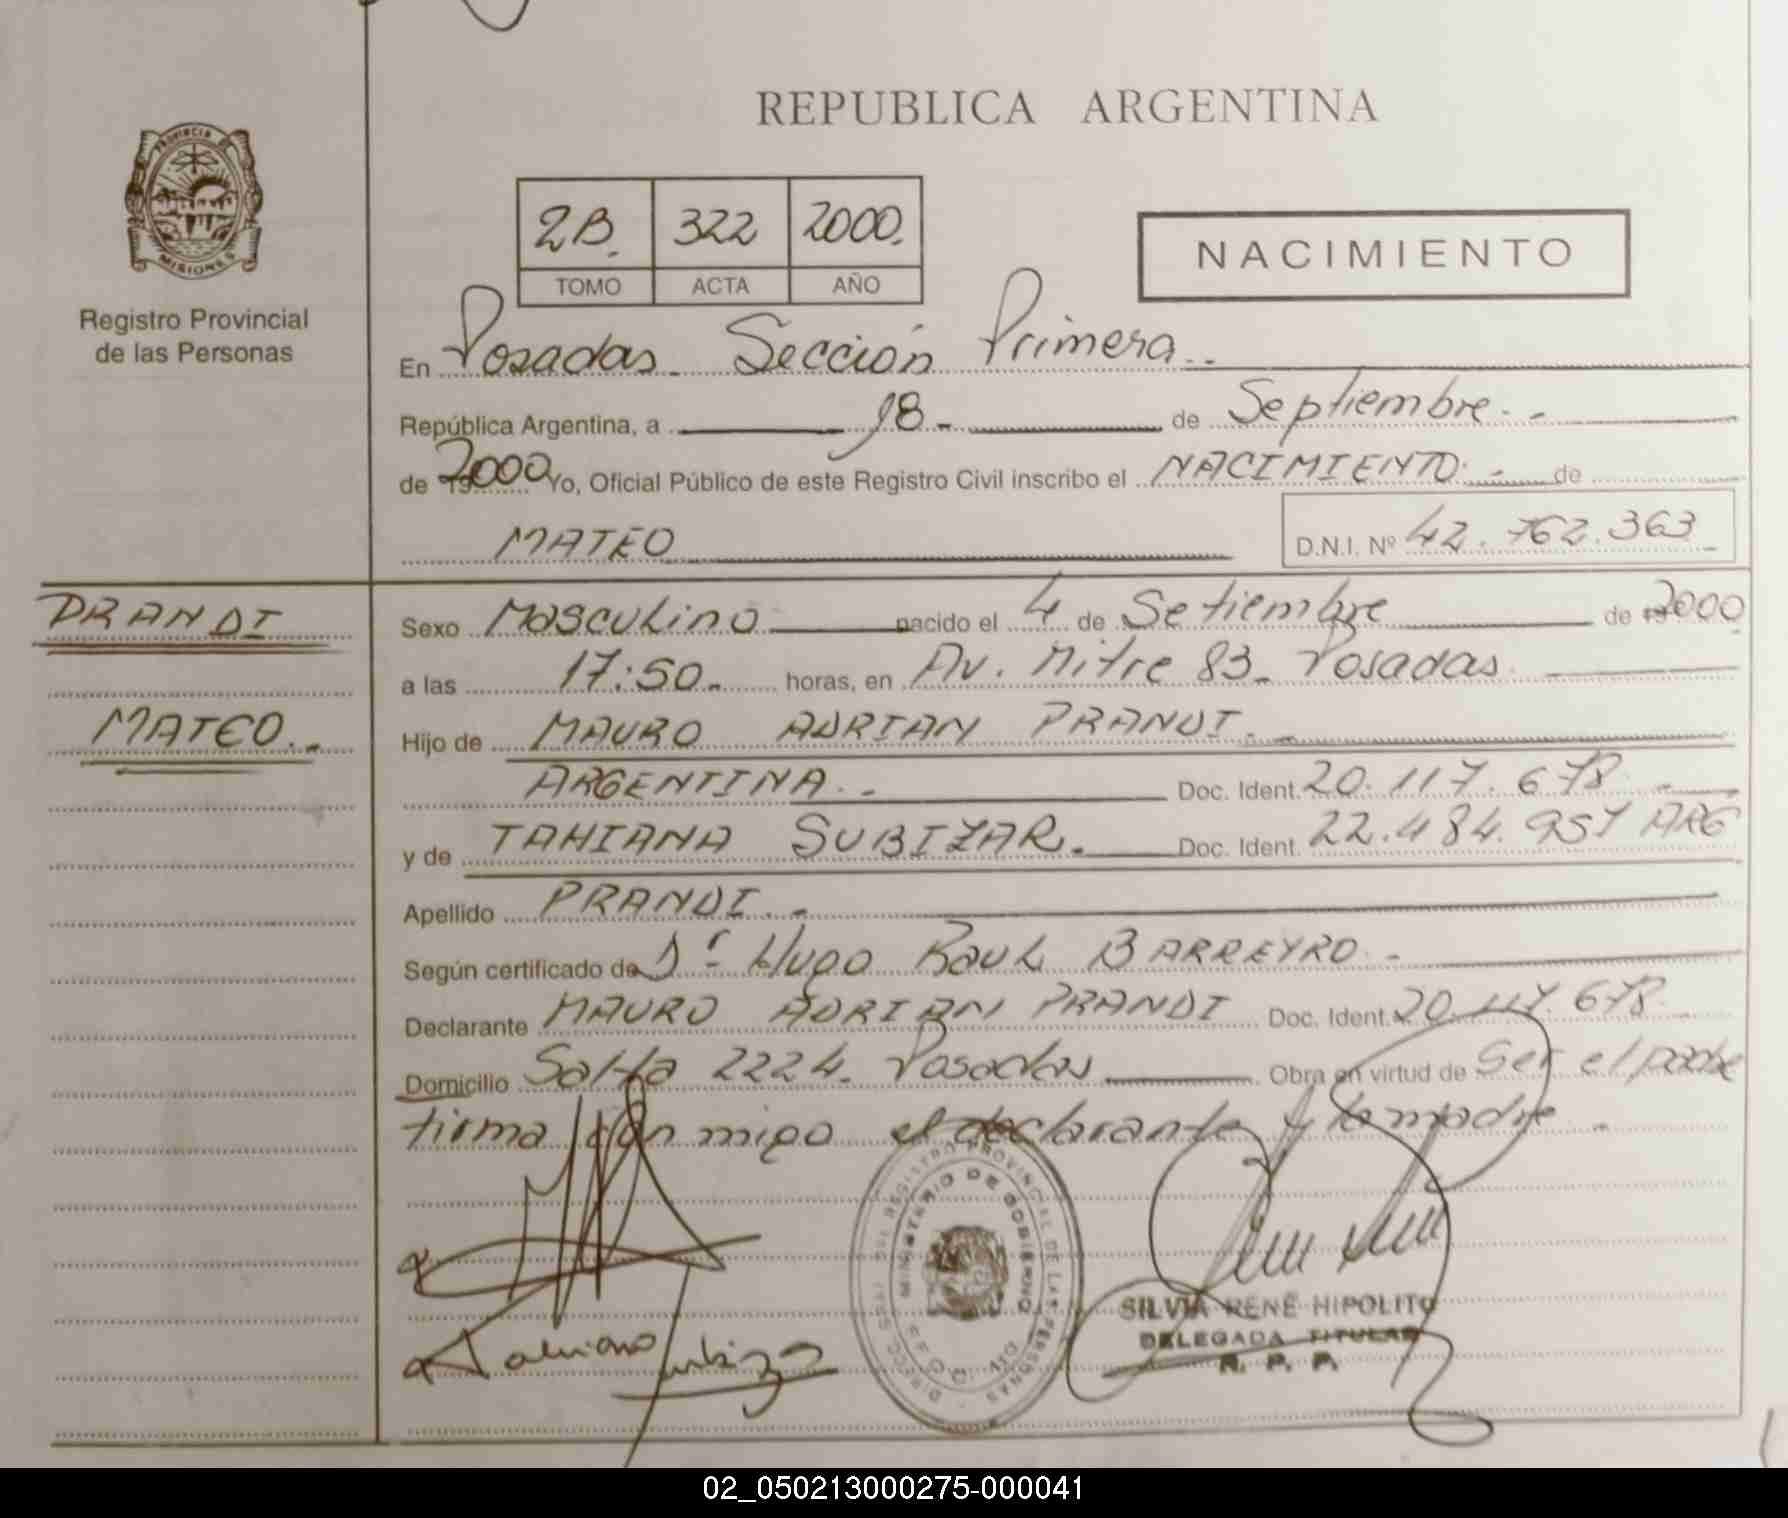 REPUBLICA ARGENTINA
PROVINCIA DE
MISIONES
Registro Provincial
de las Personas
2B. 322 2000.
TOMO ACTA AÑO
NACIMIENTO
En Posadas. Sección Primera
República Argentina, a 18 de Septiembre.
de 2000 Yo, Oficial Público de este Registro Civil inscribo el NACIMIENTO de
MATEO D.N.I. Nº 42.762.363
PRANDI
MATEO.
Sexo Masculino nacido el 4 de Setiembre de 2000
a las 17:50 horas, en Av. Mitre 83 Posadas
Hijo de MAURO ADRIAN PRANDI.
ARGENTINA. Doc. Ident. 20.117.678
y de TAHIANA SUBIZAR. Doc. Ident. 22.484.957 ARG
Apellido PRANDI.
Según certificado de Dr Hugo Raul BARREYRO.
Declarante MAURO ADRIAN PRANDI Doc. Ident. 20.117.678
Domicilio Salta 2224 Posadas Obra en virtud de Ser el padre
firma con migo el declarante y la madre.
REGISTRO PROVINCIAL DE LAS PERSONAS
MINISTERIO DE GOBIERNO
SILVIA RENÉ HIPOLITO
DELEGADA TITULAR
R. P. P.
02_050213000275-000041